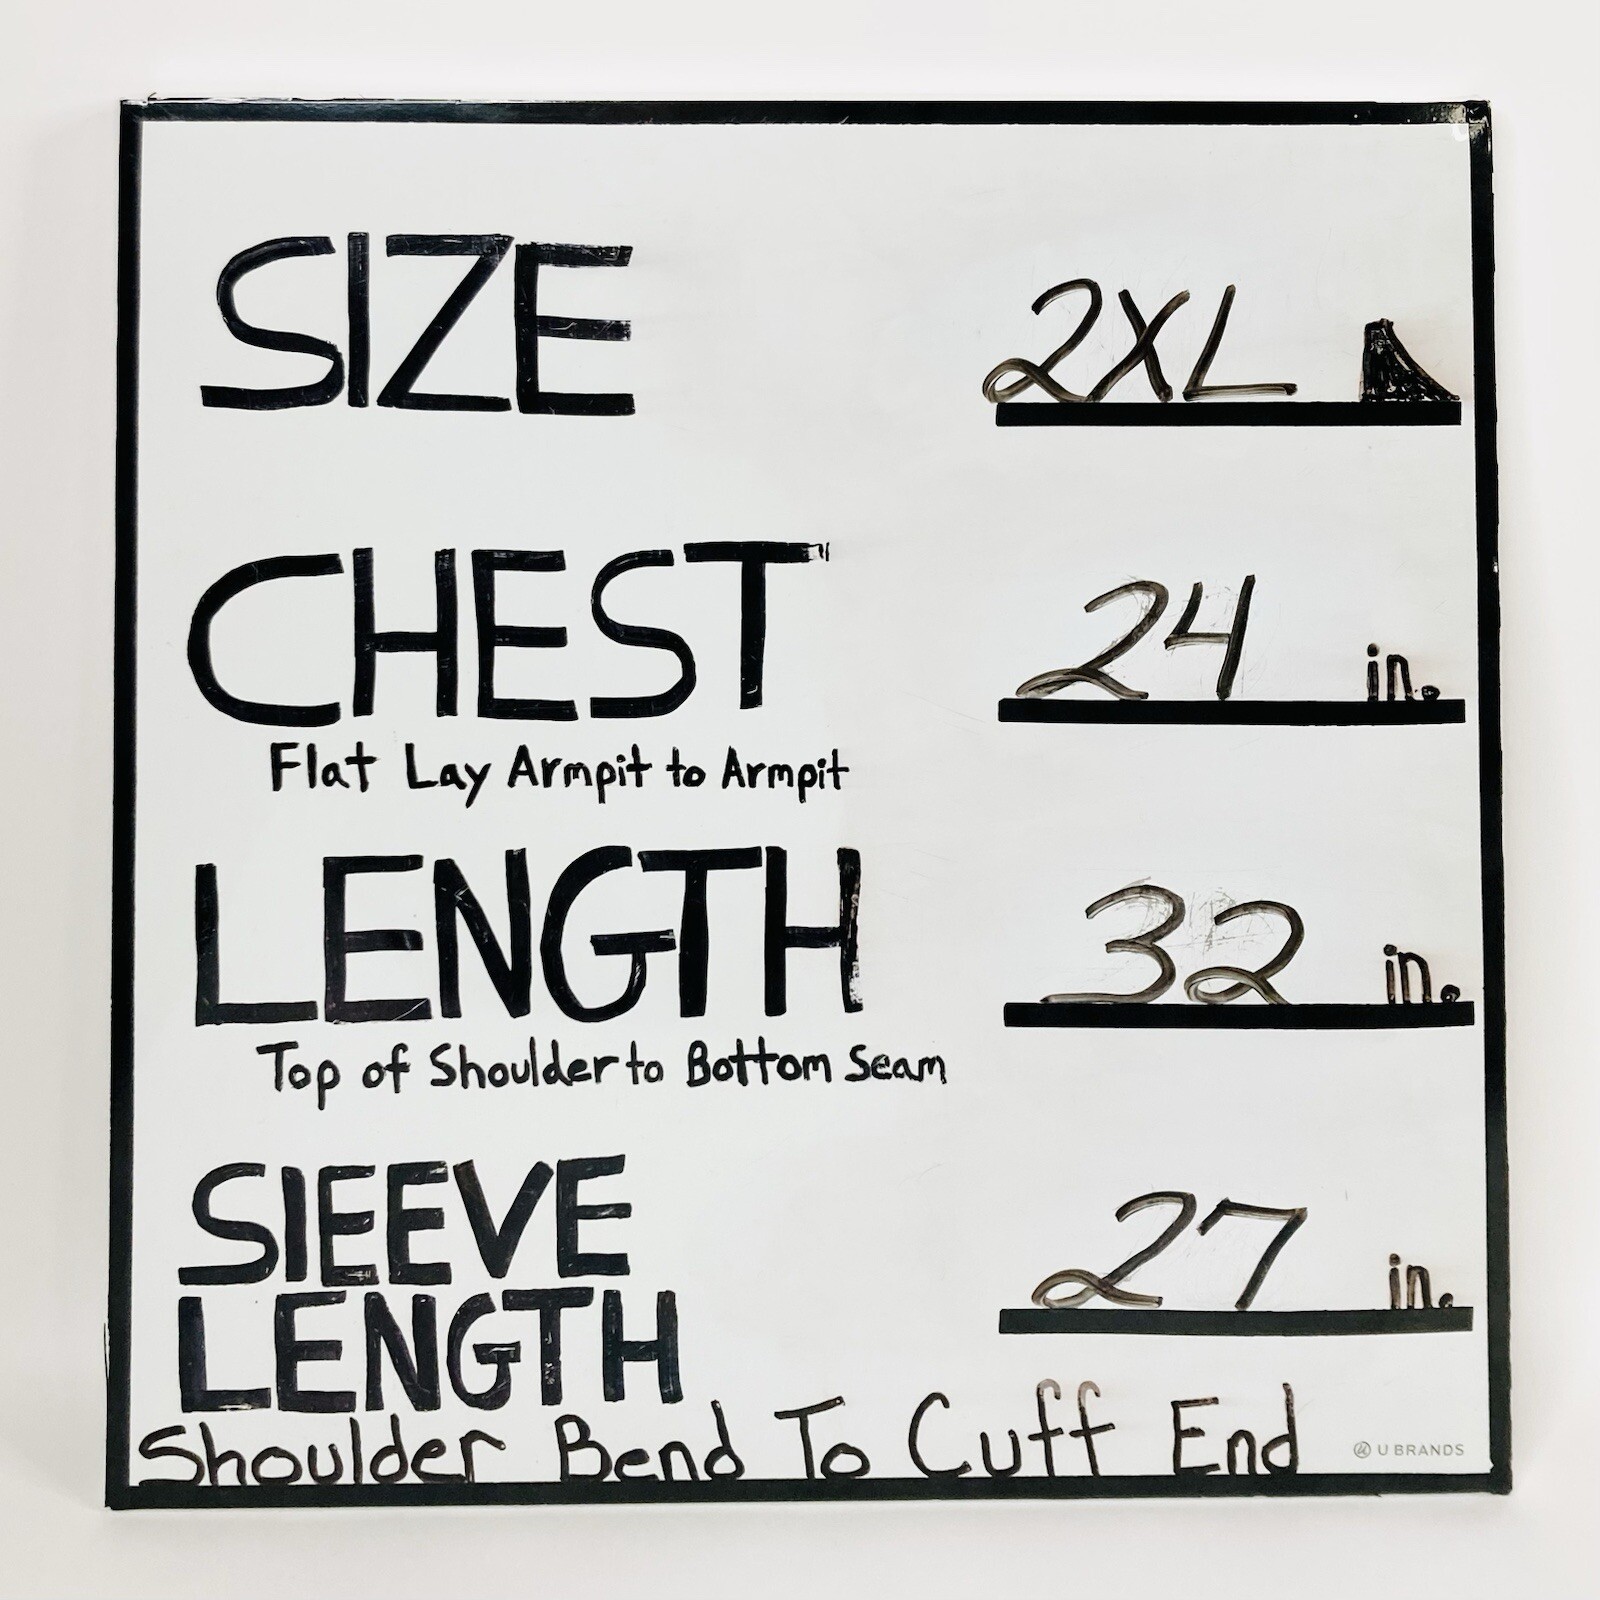 SIZE 2XL
CHEST 24 in.
Flat Lay Armpit to Armpit
LENGTH 32 in.
Top of Shoulder to Bottom Seam
SlEEVE
LENGTH 27 in.
Shoulder Bend To Cuff End
U BRANDS